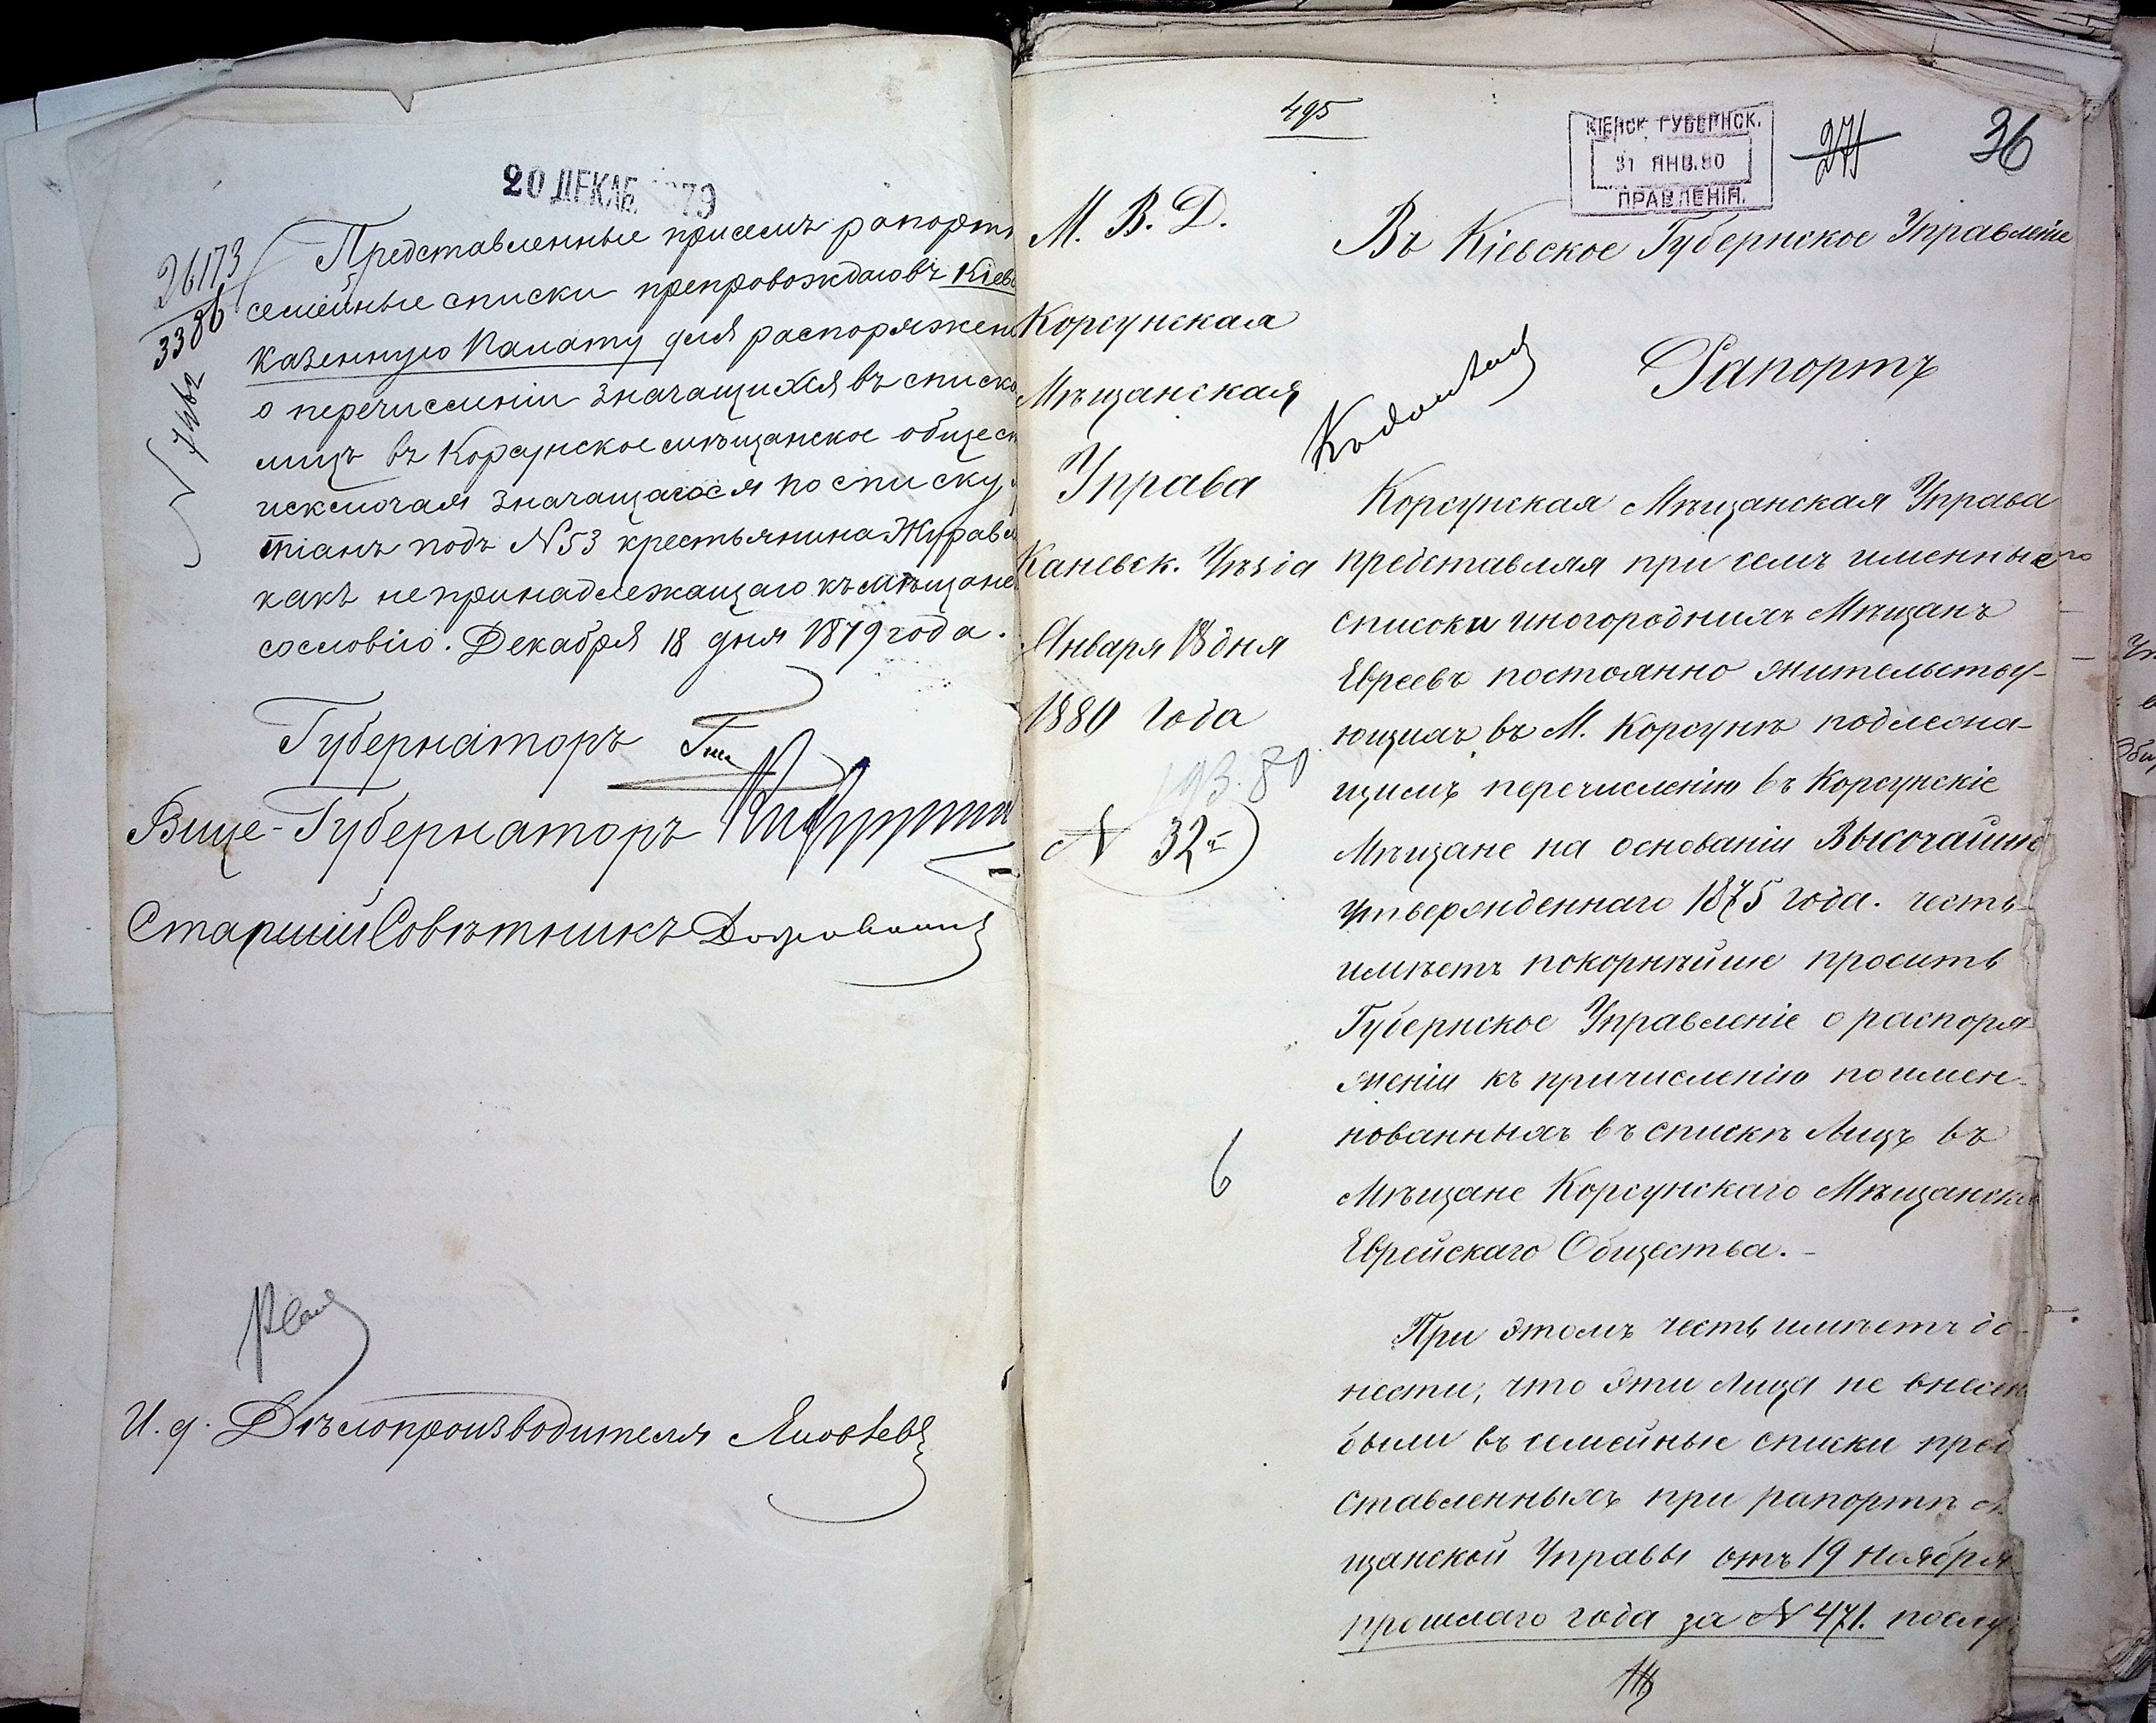 20 ДЕКАБ 79
26173
3386
7462
Представленные при семъ рапорт
семейные списки препровождаю въ Кіев
Казенную Палату для распоряжен
о перечисленіи значащихся въ списк
лицъ въ Корсунское мѣщанское общес
исключая значащагося по списку
тіанъ подъ N 53 крестьянина Журав
какъ непринадлежащаго къ мѣщан
сословію. Декабря 18 дня 1879 года.
Губернаторъ
Вице-Губернаторъ
Старшій Совѣтникъ
И. д. Дѣлопроизводителя
495
КІЕВСК. ГУБЕРНСК.
31 ЯНВ. 80
ПРАВЛЕНІЯ.
271
36
М. В. Д.
Корсунская
Мѣщанская
Управа
Каневск. Уѣзда
Января 18 дня
1880 года
193. 80
N 32
6
Въ Кіевское Губернское Управленіе
Рапортъ
Корсунская Мѣщанская Управа
представляя при семъ именные
списки иногороднихъ Мѣщанъ
Евреевъ постоянно жительству-
ющихъ въ М. Корсунѣ подлежа-
щимъ перечисленію въ Корсунскіе
Мѣщане на основаніи Высочайше
утвержденнаго 1875 года. честь
имѣетъ покорнѣйше просить
Губернское Управленіе о распоря-
женіи къ причисленію поимен-
нованныхъ въ спискѣ Лицъ въ
Мѣщане Корсунскаго Мѣщанска
Еврейскаго Общества.-
При этомъ честь имѣетъ до-
нести, что эти Лица не внесен
были въ семейные списки пред
ставленныхъ при рапортѣ М
щанской Управы отъ 19 Ноября
прошлаго года за N 471. послу